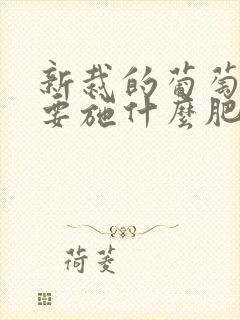 新栽的葡萄
要施什麼肥
荷菱